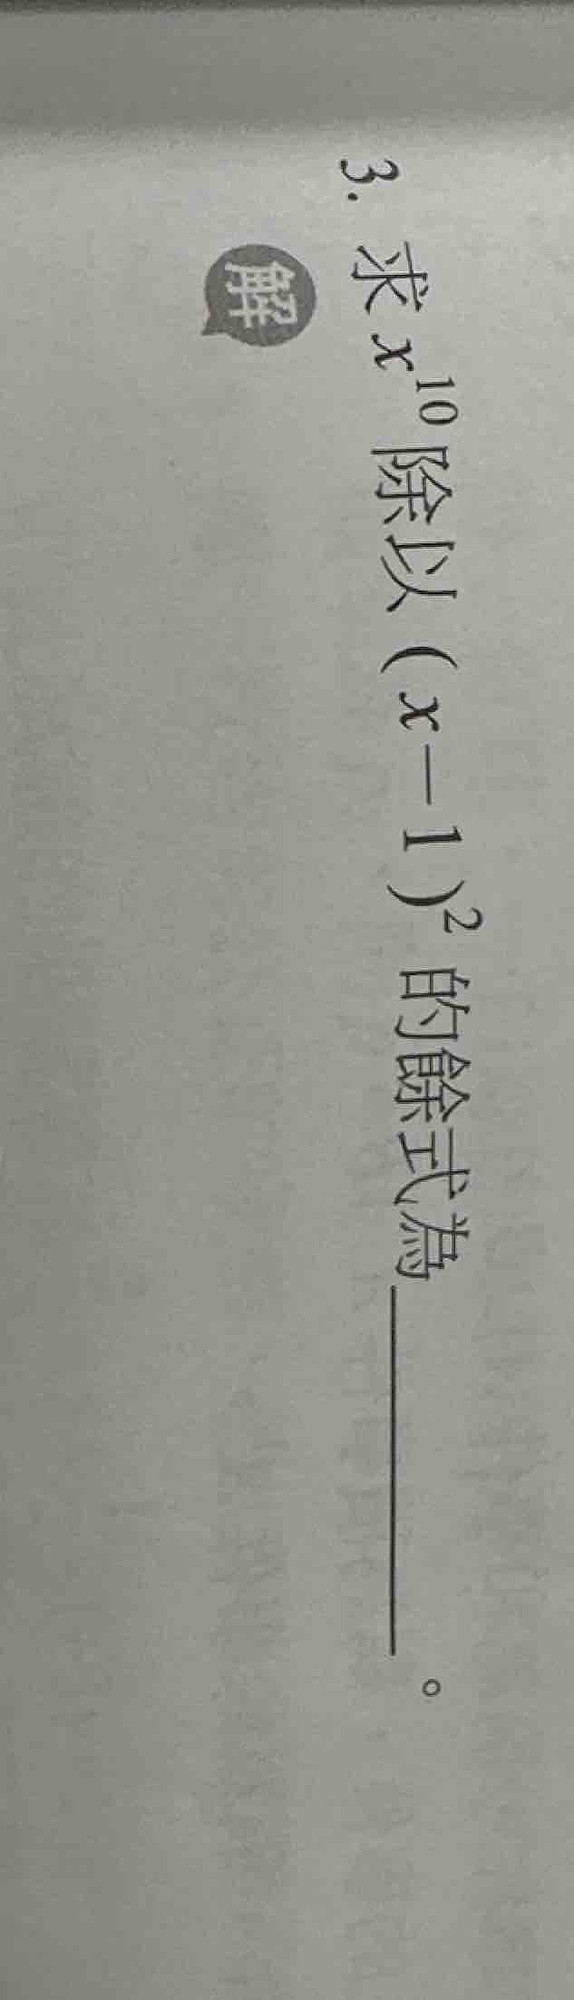 3. 求 x¹⁰ 除以 (x－1)² 的餘式為＿＿＿＿＿＿。
解